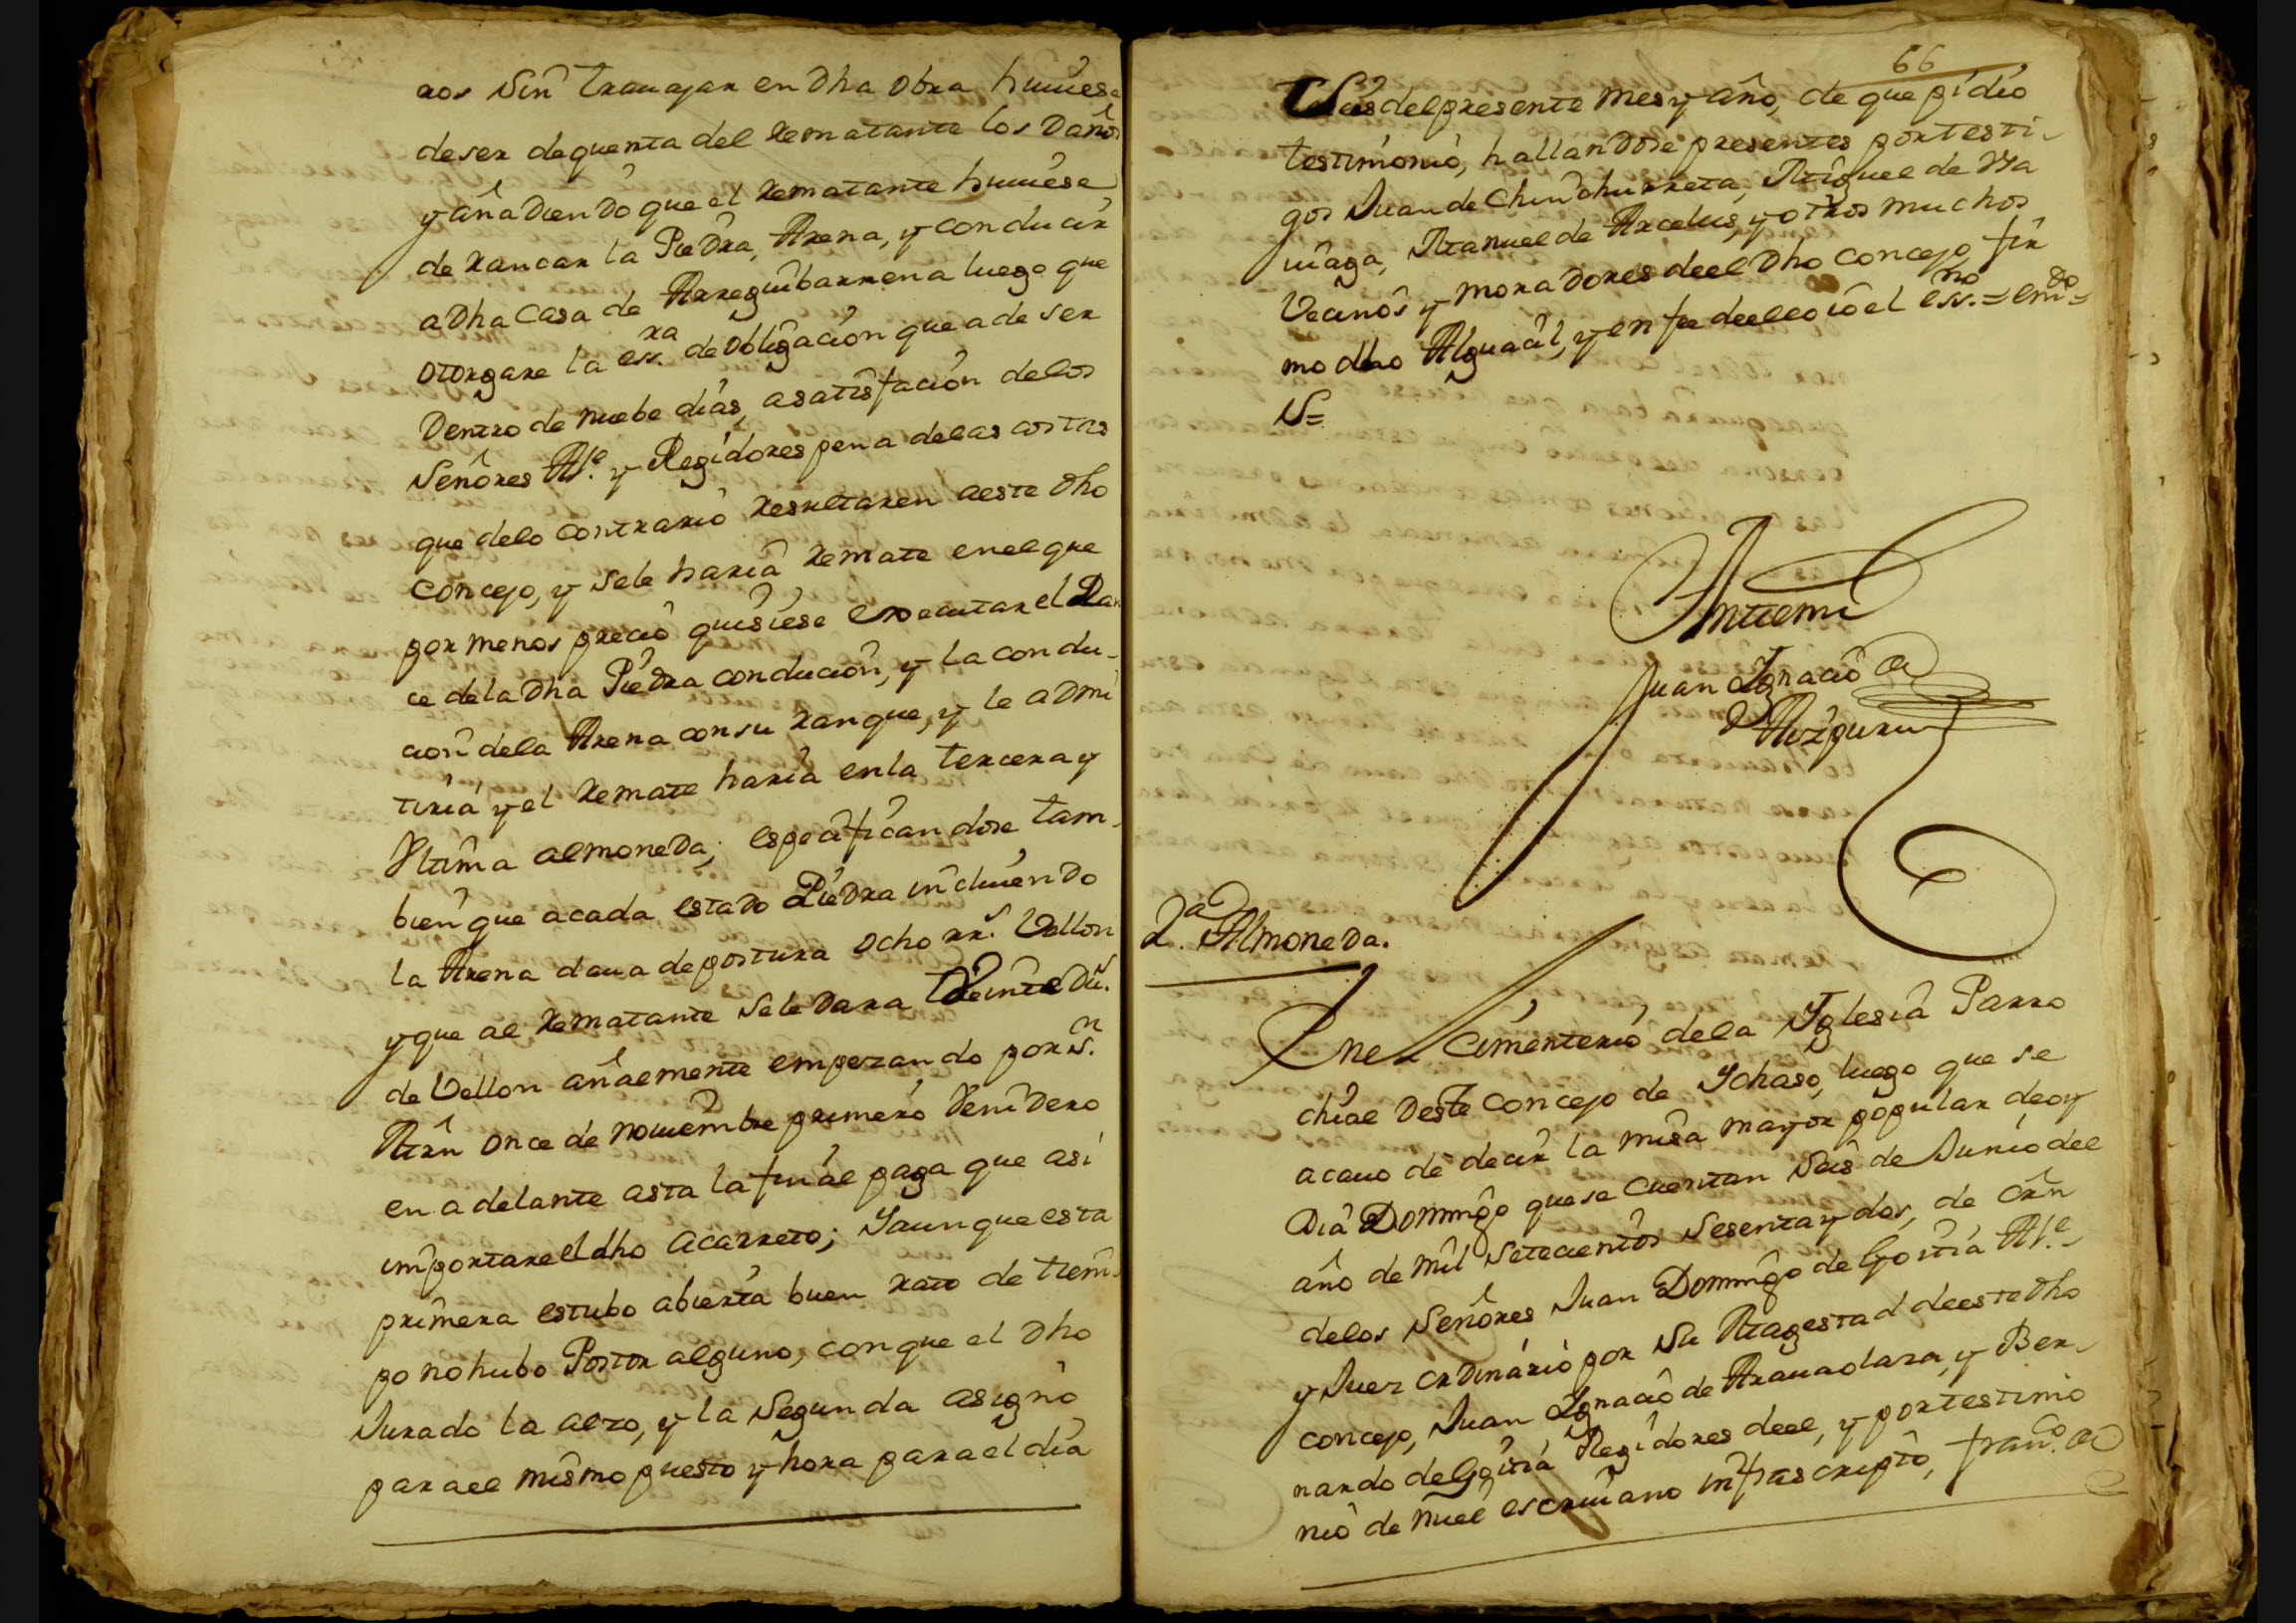 ros sin trauajar en dha obra huuiese
deser dequenta del Rematante los Daños
y añadiendo que el Rematante huuiese
de rancar la Piedra, Arena, y conducir
a Dha Casa de Arreguibarrena luego que
otorgare la ess.ra de obligacion que a de ser
Dentro de nuebe dias, a satisfacion delos
Señores Al.e y Regidores pena delas costas
que delo contrario resultaren a este dho
concejo, y sele haria remate en el que
por menos precio quisiese executar el Ran
ce dela Dha Piedra conducion, y la condu-
cion dela Arena con su ranque, y le admi
tiria y el Remate haria en la tercera y
Vltima almoneda; especificandose tam-
bien que a cada estado Piedra incluiendo
la Arena daua de postura ocho rr.s Vellon
y que al Rematante sele dara Veinte Du.s
de Vellon añalmente empezando por S.n
Mrn once de nouiembre primero Venidero
en adelante asta la final paga que asi
importare el dho acarreto; Y aunque esta
primera estubo abierta buen rato de tiem-
po no hubo Postor alguno, con que el Dho
Jurado la alzo, y la Segunda asigno
para el mismo puesto y hora para el dia
66
Seis del presente mes y año, de que pidio
testimonio, hallandose presentes por testi-
gos Juan de Chindhurreta, Miguel de Vsa
uiaga, Manuel de Arcelus, y otros muchos
Vecinos y moradores deel Dho Concejo, fir
mo dho Alguacil, y en fee deello io el ess.no = em.do =
S=
Antemi
Juan Ignacio de
Aizpuru
2.a Almoneda.
Enel Cimenterio dela Yglesia Parro
chial Deste Concejo de Ychaso, luego que se
acauo de decir la misa mayor popular deoy
Dia Domingo que se cuentan Seis de Junio del
año de mil Setecientos Sesenta y dos, de orn
delos Señores Juan Domingo de Goitia Al.e
y Juez ordinario por Su Magestad deeste Dho
concejo, Juan Ignacio de Arauaolaza, y Ber-
nardo de Goitia Regidores deel, y por testimo
nio de mi el escriuano infrascripto, fran.co de